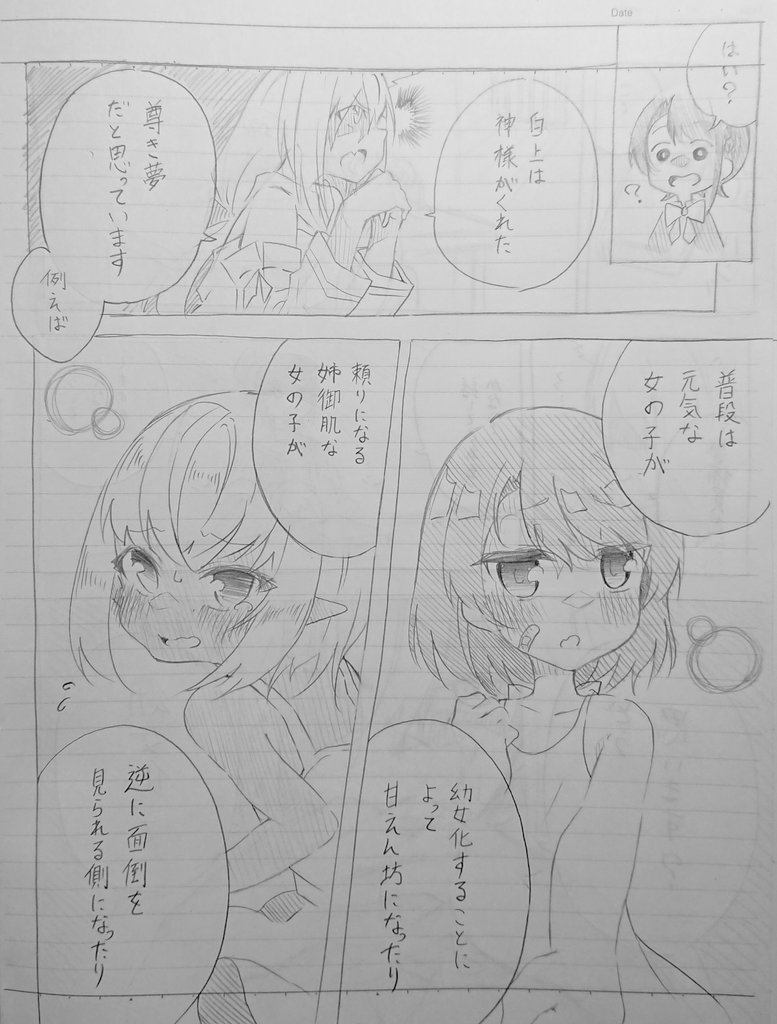 Date
はい?
?
白上は
神様がくれた
尊き夢
だと思っています
例えば
普段は
元気な
女の子が
幼女化することに
よって
甘えん坊になったり
頼りになる
姉御肌な
女の子が
逆に面倒を
見られる側になったり